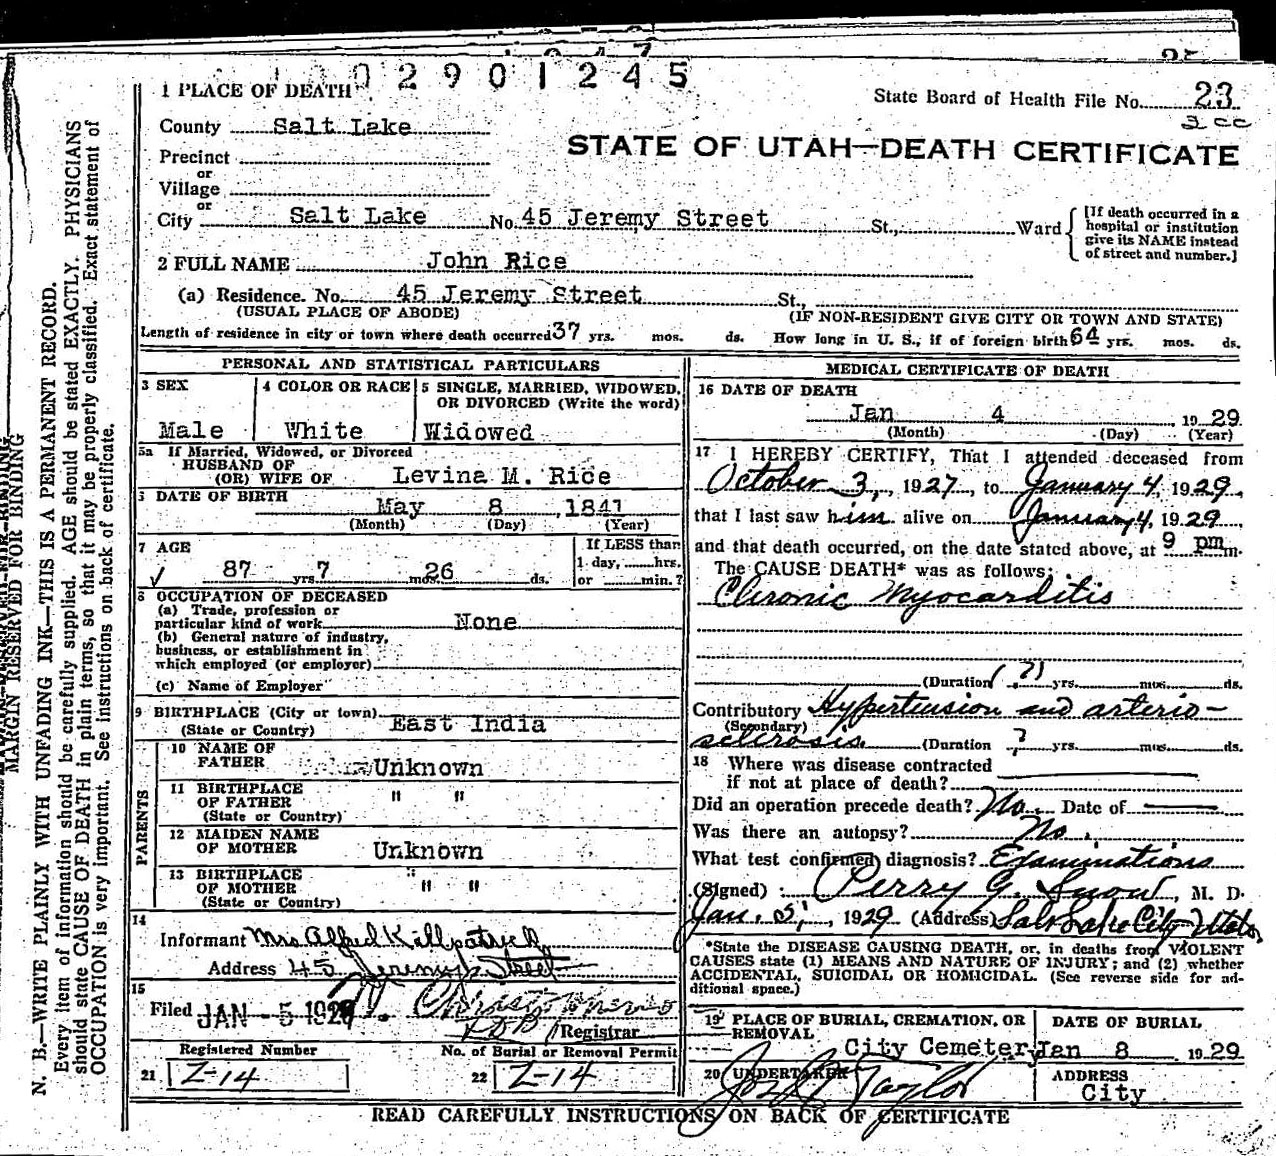 02901245
1 PLACE OF DEATH
State Board of Health File No. 23
2 cc
County Salt Lake
STATE OF UTAH—DEATH CERTIFICATE
Precinct
or
Village
or
City Salt Lake No. 45 Jeremy Street St., Ward
[If death occurred in a
hospital or institution
give its NAME instead
of street and number.]
2 FULL NAME John Rice
(a) Residence. No. 45 Jeremy Street St.,
(USUAL PLACE OF ABODE) (IF NON-RESIDENT GIVE CITY OR TOWN AND STATE)
Length of residence in city or town where death occurred 37 yrs. mos. ds. How long in U. S., if of foreign birth 64 yrs. mos. ds.
PERSONAL AND STATISTICAL PARTICULARS
3 SEX
Male
4 COLOR OR RACE
White
5 SINGLE, MARRIED, WIDOWED,
OR DIVORCED (Write the word)
Widowed
5a If Married, Widowed, or Divorced
HUSBAND OF
(OR) WIFE OF Levina M. Rice
DATE OF BIRTH
May 8, 1841
(Month) (Day) (Year)
7 AGE
87 yrs. 7 mos. 26 ds.
If LESS than
1 day, hrs.
or min.?
8 OCCUPATION OF DECEASED
(a) Trade, profession or
particular kind of work None
(b) General nature of industry,
business, or establishment in
which employed (or employer)
(c) Name of Employer
9 BIRTHPLACE (City or town)
(State or Country) East India
PARENTS
10 NAME OF
FATHER Unknown
11 BIRTHPLACE
OF FATHER " "
(State or Country)
12 MAIDEN NAME
OF MOTHER Unknown
13 BIRTHPLACE
OF MOTHER " "
(State or Country)
14
Informant Mrs Alfred Killpatrick
Address 45 Jeremy Street
15
Filed JAN - 5 1929
Registrar
Registered Number
21 Z-14
No. of Burial or Removal Permit
22 Z-14
MEDICAL CERTIFICATE OF DEATH
16 DATE OF DEATH
Jan 4, 1929
(Month) (Day) (Year)
17 I HEREBY CERTIFY, That I attended deceased from
October 3, 1927, to January 4, 1929,
that I last saw him alive on January 4, 1929,
and that death occurred, on the date stated above, at 9 pm m.
The CAUSE DEATH* was as follows:
Chronic Myocarditis
(Duration (?) yrs. mos. ds.
Contributory Hypertension and arterio-
(Secondary)
sclerosis. (Duration ? yrs. mos. ds.
18 Where was disease contracted
if not at place of death?
Did an operation precede death? No. Date of
Was there an autopsy? No.
What test confirmed diagnosis? Examinations
(Signed) Perry G. Snow, M. D.
Jan. 5, 1929 (Address) Salt Lake City Utah
*State the DISEASE CAUSING DEATH, or, in deaths from VIOLENT
CAUSES state (1) MEANS AND NATURE OF INJURY; and (2) whether
ACCIDENTAL, SUICIDAL OR HOMICIDAL. (See reverse side for ad-
ditional space.)
19 PLACE OF BURIAL, CREMATION, OR
REMOVAL
City Cemetery
DATE OF BURIAL
Jan 8 1929
20 UNDERTAKER
Taylor
ADDRESS
City
READ CAREFULLY INSTRUCTIONS ON BACK OF CERTIFICATE
MARGIN RESERVED FOR BINDING
N. B.—WRITE PLAINLY WITH UNFADING INK—THIS IS A PERMANENT RECORD.
Every item of information should be carefully supplied. AGE should be stated EXACTLY. PHYSICIANS
should state CAUSE OF DEATH in plain terms, so that it may be properly classified. Exact statement of
OCCUPATION is very important. See instructions on back of certificate.